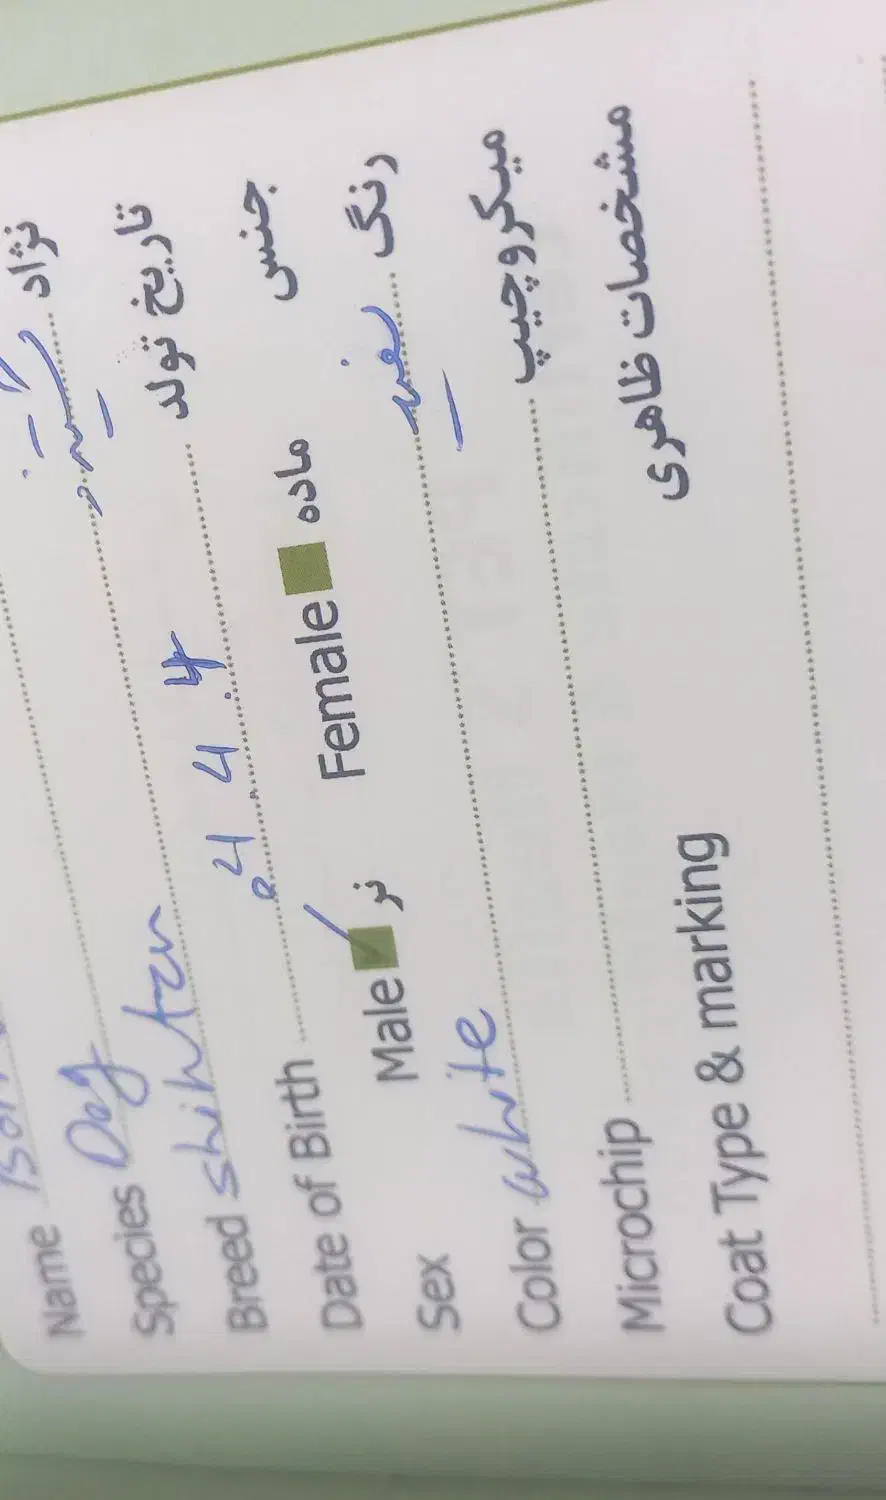 Name
Species Dog
Breed shih tzu شیتزو نژاد
Date of Birth تاریخ تولد
Sex Male نر Female ماده جنس
Color white سفید رنگ
Microchip میکروچیپ
Coat Type & marking مشخصات ظاهری